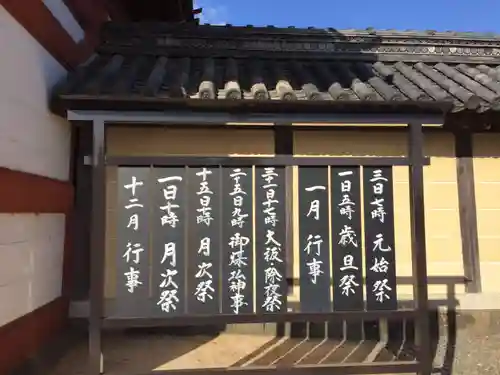 十二月行事
一日十時 月次祭
十五日十時 月次祭
二十五日九時 御煤払神事
三十一日十七時 大祓・除夜祭
一月行事
一日五時 歳旦祭
三日七時 元始祭